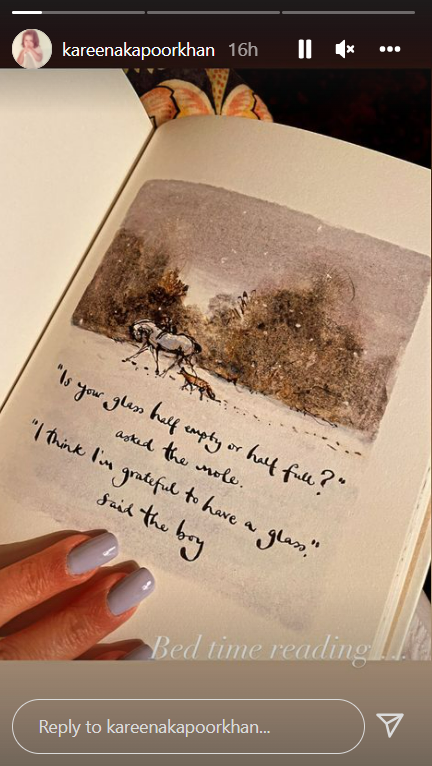 kareenakapoorkhan 16h
"Is your glass half empty or half full?"
asked the mole.
"I think I'm grateful to have a glass,"
said the boy
Bed time reading ....
Reply to kareenakapoorkhan...